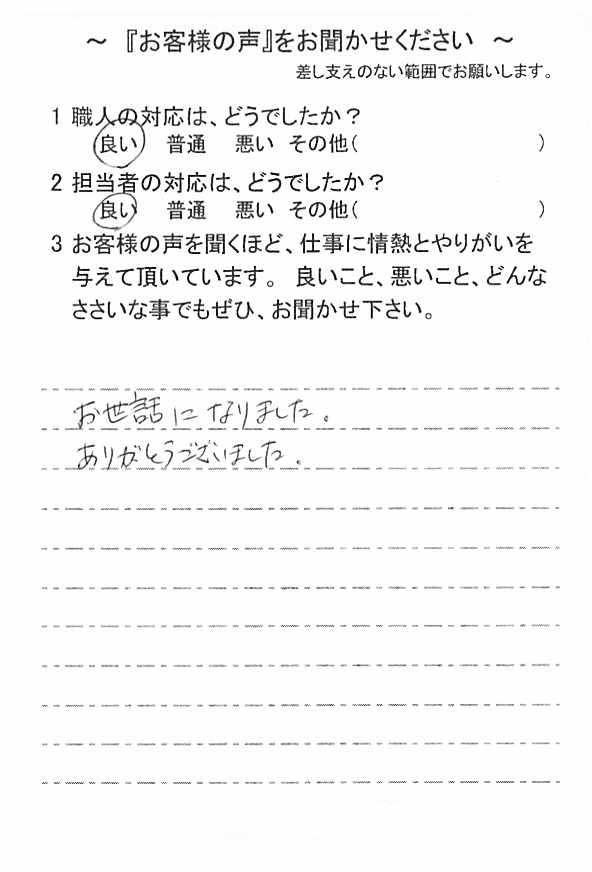 ～ 『お客様の声』をお聞かせください ～
差し支えのない範囲でお願いします。
1 職人の対応は、どうでしたか？
良い 普通 悪い その他( )
2 担当者の対応は、どうでしたか？
良い 普通 悪い その他( )
3 お客様の声を聞くほど、仕事に情熱とやりがいを
与えて頂いています。 良いこと、悪いこと、どんな
ささいな事でもぜひ、お聞かせ下さい。
お世話になりました。
ありがとうございました。